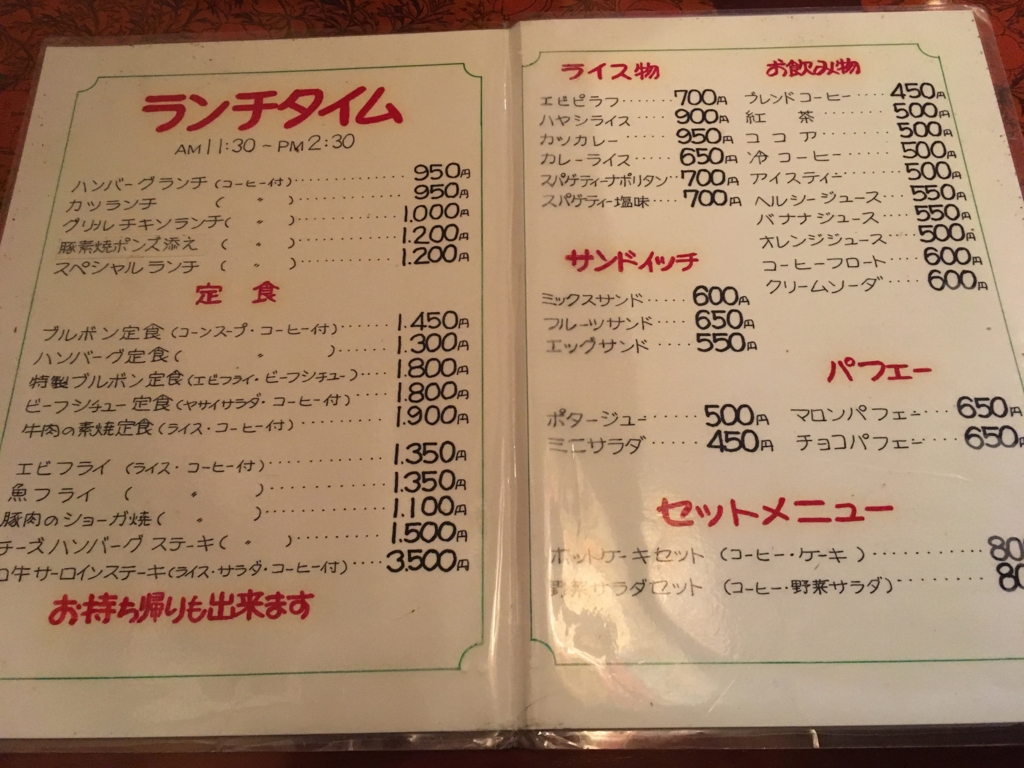 ランチタイム
AM 11:30 ~ PM 2:30
ハンバーグランチ (コーヒー付)・・・・・・・・ 950円
カツランチ ( 〃 )・・・・・・・・ 950円
グリルチキンランチ( 〃 )・・・・・・・ 1.000円
豚素焼ポンズ添え ( 〃 )・・・・・・・ 1.200円
スペシャルランチ ( 〃 )・・・・・・・ 1.200円
定食
ブルボン定食 (コーンスープ・コーヒー付)・・・・・・ 1.450円
ハンバーグ定食 ( 〃 )・・・・・・ 1.300円
特製ブルボン定食(エビフライ・ビーフシチュー)・・・・ 1.800円
ビーフシチュー定食 (ヤサイサラダ・コーヒー付)・・・・ 1.800円
牛肉の素焼定食(ライス・コーヒー付)・・・・・・・・ 1.900円
エビフライ (ライス・コーヒー付)・・・・・・・・・・ 1.350円
魚フライ ( 〃 )・・・・・・・・・・ 1.350円
豚肉のショーガ焼 ( 〃 )・・・・・・・・・ 1.100円
チーズハンバーグステーキ( 〃 )・・・・・・・ 1.500円
牛サーロインステーキ(ライス・サラダ・コーヒー付)・・・ 3.500円
お持ち帰りも出来ます
ライス物
エビピラフ・・・・・・ 700円
ハヤシライス・・・・ 900円
カツカレー・・・・・ 950円
カレーライス・・・・ 650円
スパゲティーナポリタン・・ 700円
スパゲティー塩味・・・・ 700円
お飲み物
ブレンドコーヒー・・・・ 450円
紅茶・・・・・・ 500円
ココア・・・・・・ 500円
冷コーヒー・・・・・ 500円
アイスティー・・・・・ 500円
ヘルシージュース・・・ 550円
バナナジュース・・・・ 550円
オレンジジュース・・・ 500円
コーヒーフロート・・・ 600円
クリームソーダ・・・・ 600円
サンドイッチ
ミックスサンド・・・・ 600円
フルーツサンド・・・・ 650円
エッグサンド・・・・・ 550円
ポタージュー・・・・・ 500円
ミニサラダ・・・・・・ 450円
パフェー
マロンパフェー・・・ 650円
チョコパフェー・・・・ 650円
セットメニュー
ホットケーキセット (コーヒー・ケーキ)・・・・・・・・
野菜サラダセット (コーヒー・野菜サラダ)・・・・・・・